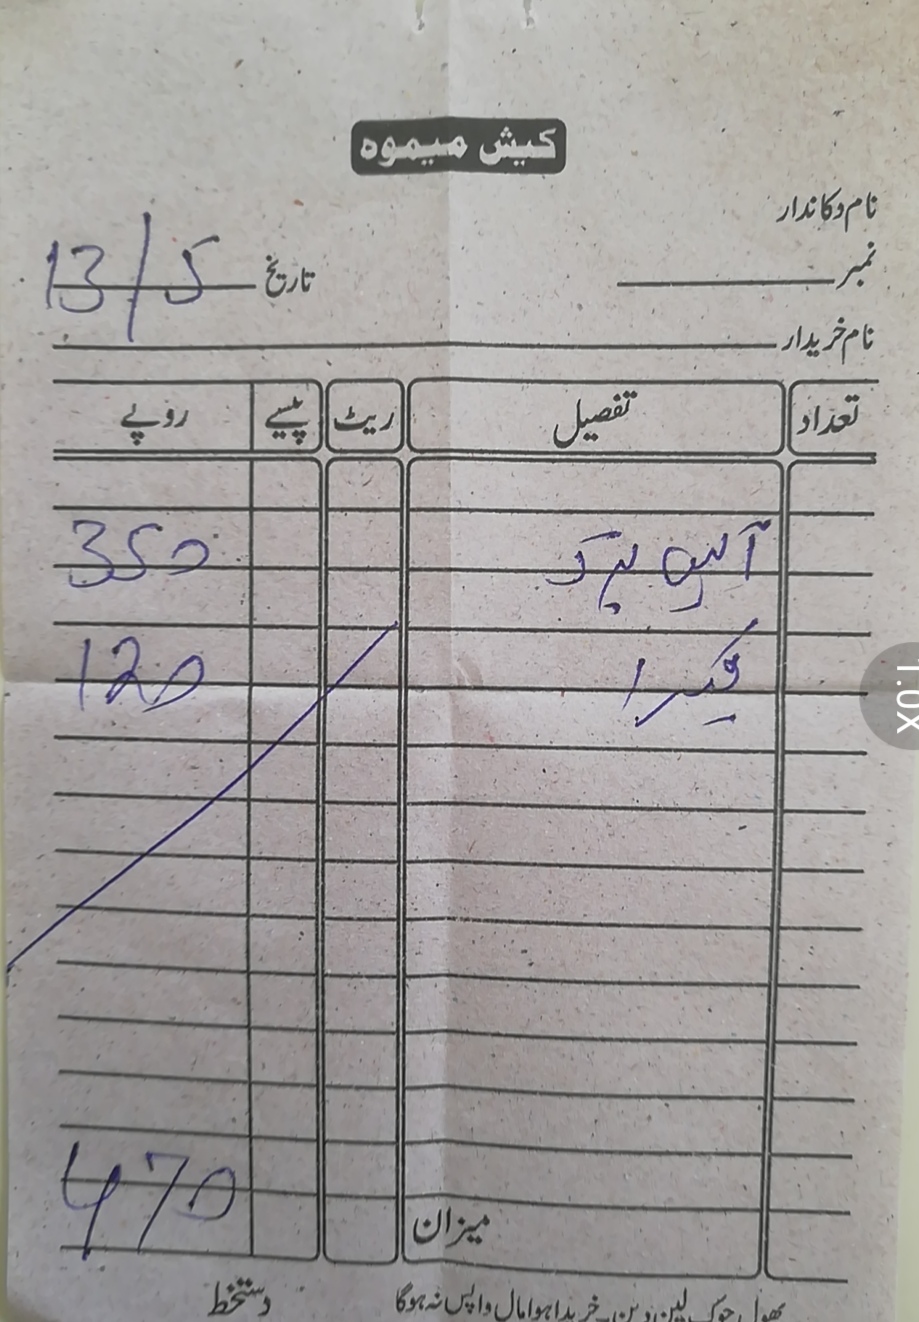 کیش میموہ
نام دکاندار
نمبر
تاریخ 13/5
نام خریدار
تعداد تفصیل ریٹ پیسے روپے
350
120
میزان 470
بھول چوک لین دین۔ خریدا ہوا مال واپس نہ ہوگا
دستخط
1.0X